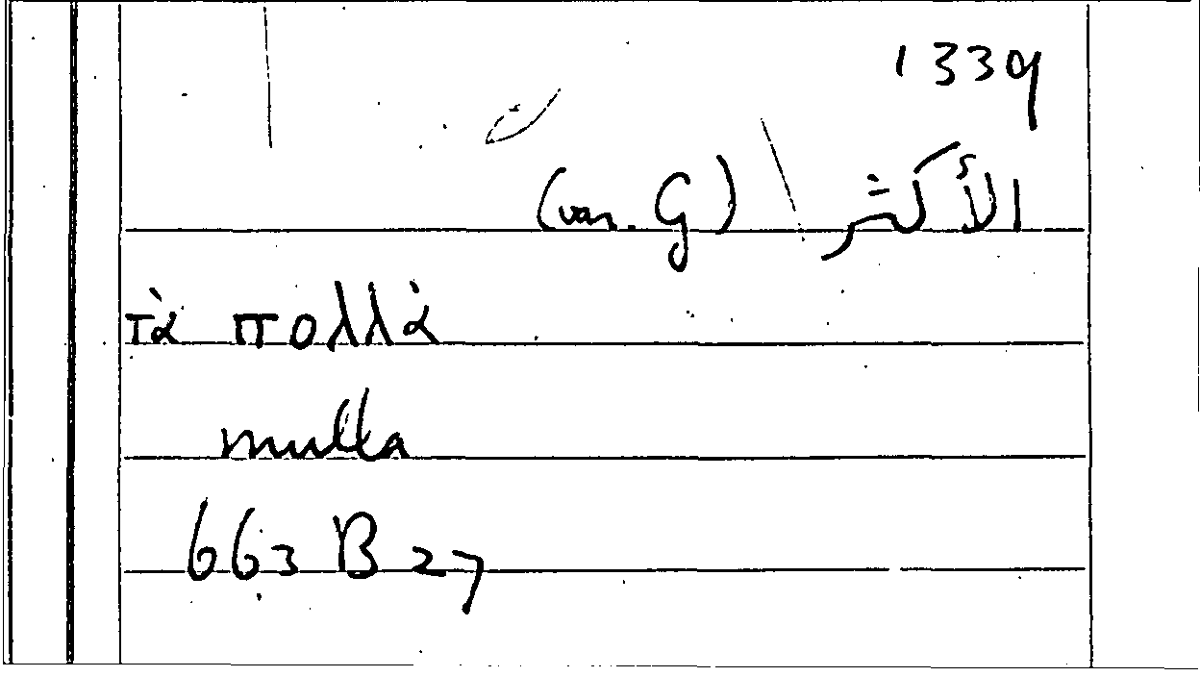 1339
الأكثر (var. G)
τὰ πολλὰ
multa
663 B 27